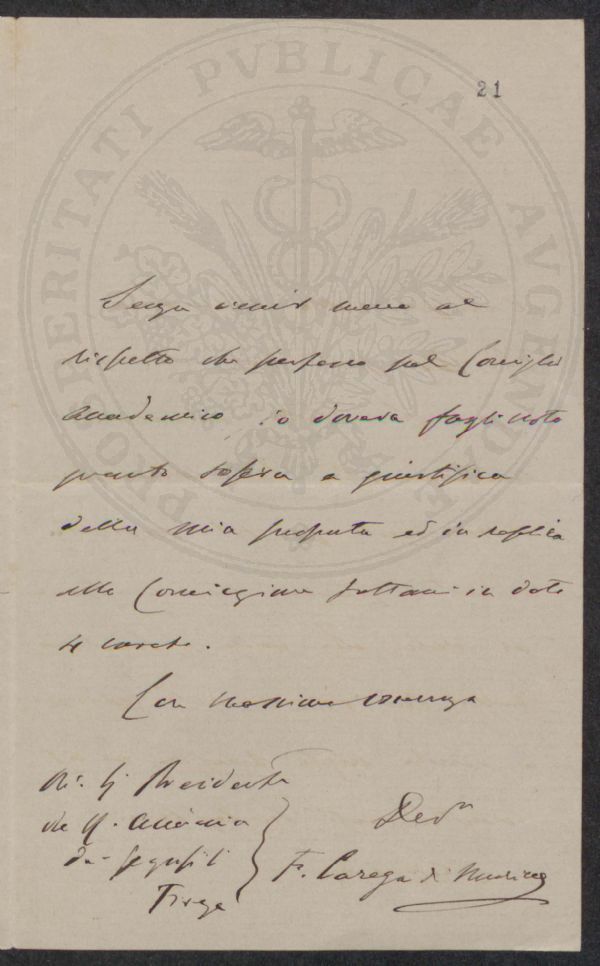 PROSPERITATI PVBLICAE AVGENDAE
21
Senza venir meno al
rispetto che professo pel Consiglio
Accademico, io doveva fargli noto
quanto sopra a giustifica
della mia proposta ed in replica
alla Comunicazione fattami in data
4 corrte.
Con massima osservanza
Al Sig. Presidente
della R. Accademia
dei Georgofili
Firenze
Devo
F. Carega di Muricce